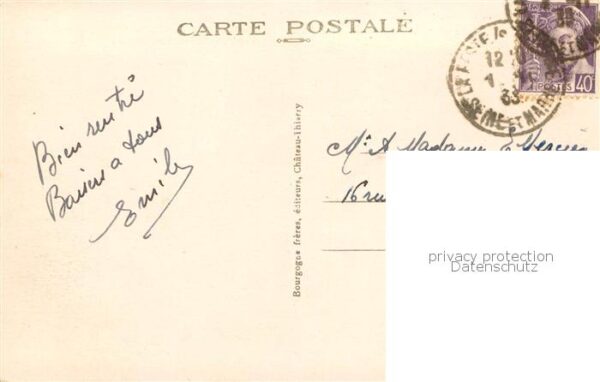 CARTE POSTALE
Bien rentré
Baisers a tous
Emile
Bourgogne frères, éditeurs, Château-Thierry
LA FERTE /s
12
1
SEINE ET MARNE
POSTES 40
Mr & Madame
16 rue
privacy protection
Datenschutz